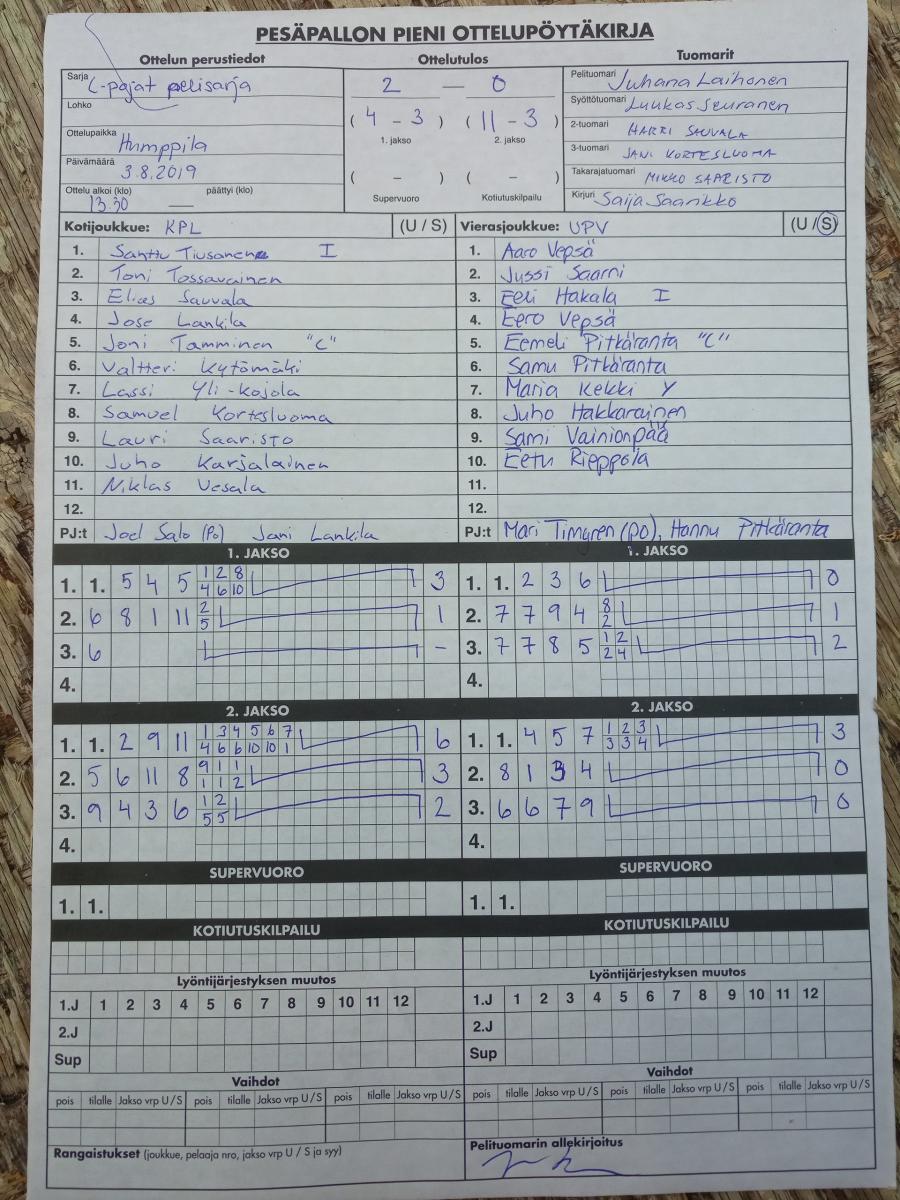 PESÄPALLON PIENI OTTELUPÖYTÄKIRJA
Ottelun perustiedot
Sarja C-pojat pelisarja
Lohko
Ottelupaikka Humppila
Päivämäärä 3.8.2019
Ottelu alkoi (klo) päättyi (klo)
13.30 —
Ottelutulos
2 — 0
( 4 - 3 ) ( 11 - 3 )
1. jakso 2. jakso
( - ) ( - )
Supervuoro Kotiutuskilpailu
Tuomarit
Pelituomari Juhana Laihonen
Syöttötuomari Luukas Seuranen
2-tuomari HARRI SAUVALA
3-tuomari JANI KORTESLUOMA
Takarajatuomari MIKKO SAARISTO
Kirjuri Saija Saarikko
Kotijoukkue: KPL (U / S)
1. Santtu Tiusanen I
2. Toni Tossavainen
3. Elias Sauvala
4. Jose Lankila
5. Joni Tamminen "C"
6. Valtteri Kytömäki
7. Lassi Yli-Kojola
8. Samuel Kortesluoma
9. Lauri Saaristo
10. Juho Karjalainen
11. Niklas Vesala
12.
PJ:t Joel Salo (Po) Jani Lankila
Vierasjoukkue: UPV (U / S)
1. Aaro Vepsä
2. Jussi Saarni
3. Eeli Hakala I
4. Eero Vepsä
5. Eemeli Pitkäranta "C"
6. Samu Pitkäranta
7. Maria Kekki Y
8. Juho Hakkarainen
9. Sami Vainionpää
10. Eetu Rieppola
11.
12.
PJ:t Mari Timgren (po), Hannu Pitkäranta
1. JAKSO
1. 1. 5 4 5 1 2 8 3
4 6 10
2. 6 8 1 11 2 1
5
3. 6 -
4.
1. JAKSO
1. 1. 2 3 6 0
2. 7 7 9 4 8 1
2
3. 7 7 8 5 1 2 2
2 4
4.
2. JAKSO
1. 1. 2 9 11 1 3 4 5 6 7 6
4 6 6 10 10 1
2. 5 6 11 8 9 1 1 3
1 1 2
3. 9 4 3 6 1 2 2
5 5
4.
2. JAKSO
1. 1. 4 5 7 1 2 3 3
3 3 4
2. 8 1 3 4 0
3. 6 6 7 9 0
4.
SUPERVUORO
1. 1.
SUPERVUORO
1. 1.
KOTIUTUSKILPAILU
KOTIUTUSKILPAILU
Lyöntijärjestyksen muutos
1.J 1 2 3 4 5 6 7 8 9 10 11 12
2.J
Sup
Lyöntijärjestyksen muutos
1.J 1 2 3 4 5 6 7 8 9 10 11 12
2.J
Sup
Vaihdot
pois tilalle Jakso vrp U / S pois tilalle Jakso vrp U / S pois tilalle Jakso vrp U / S
Vaihdot
pois tilalle Jakso vrp U / S pois tilalle Jakso vrp U / S pois tilalle Jakso vrp U / S
Rangaistukset (joukkue, pelaaja nro, jakso vrp U / S ja syy)
Pelituomarin allekirjoitus